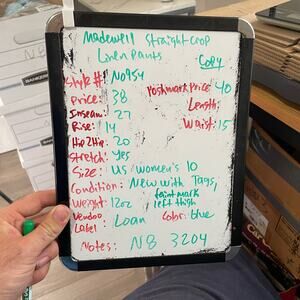 Madewell Straight Crop
Linen Pants
Copy
Style #: N0954
Poshmark Price 40
Price: 38
Length:
Inseam: 27
Waist: 15
Rise: 14
Hip 2 Hip 20
Stretch: Yes
Size: US Women's 10
Condition: New with Tags,
faint mark
left thigh
Weight: 12oz
Vendoo
Label
Loan
Color: blue
Notes: N8 3204